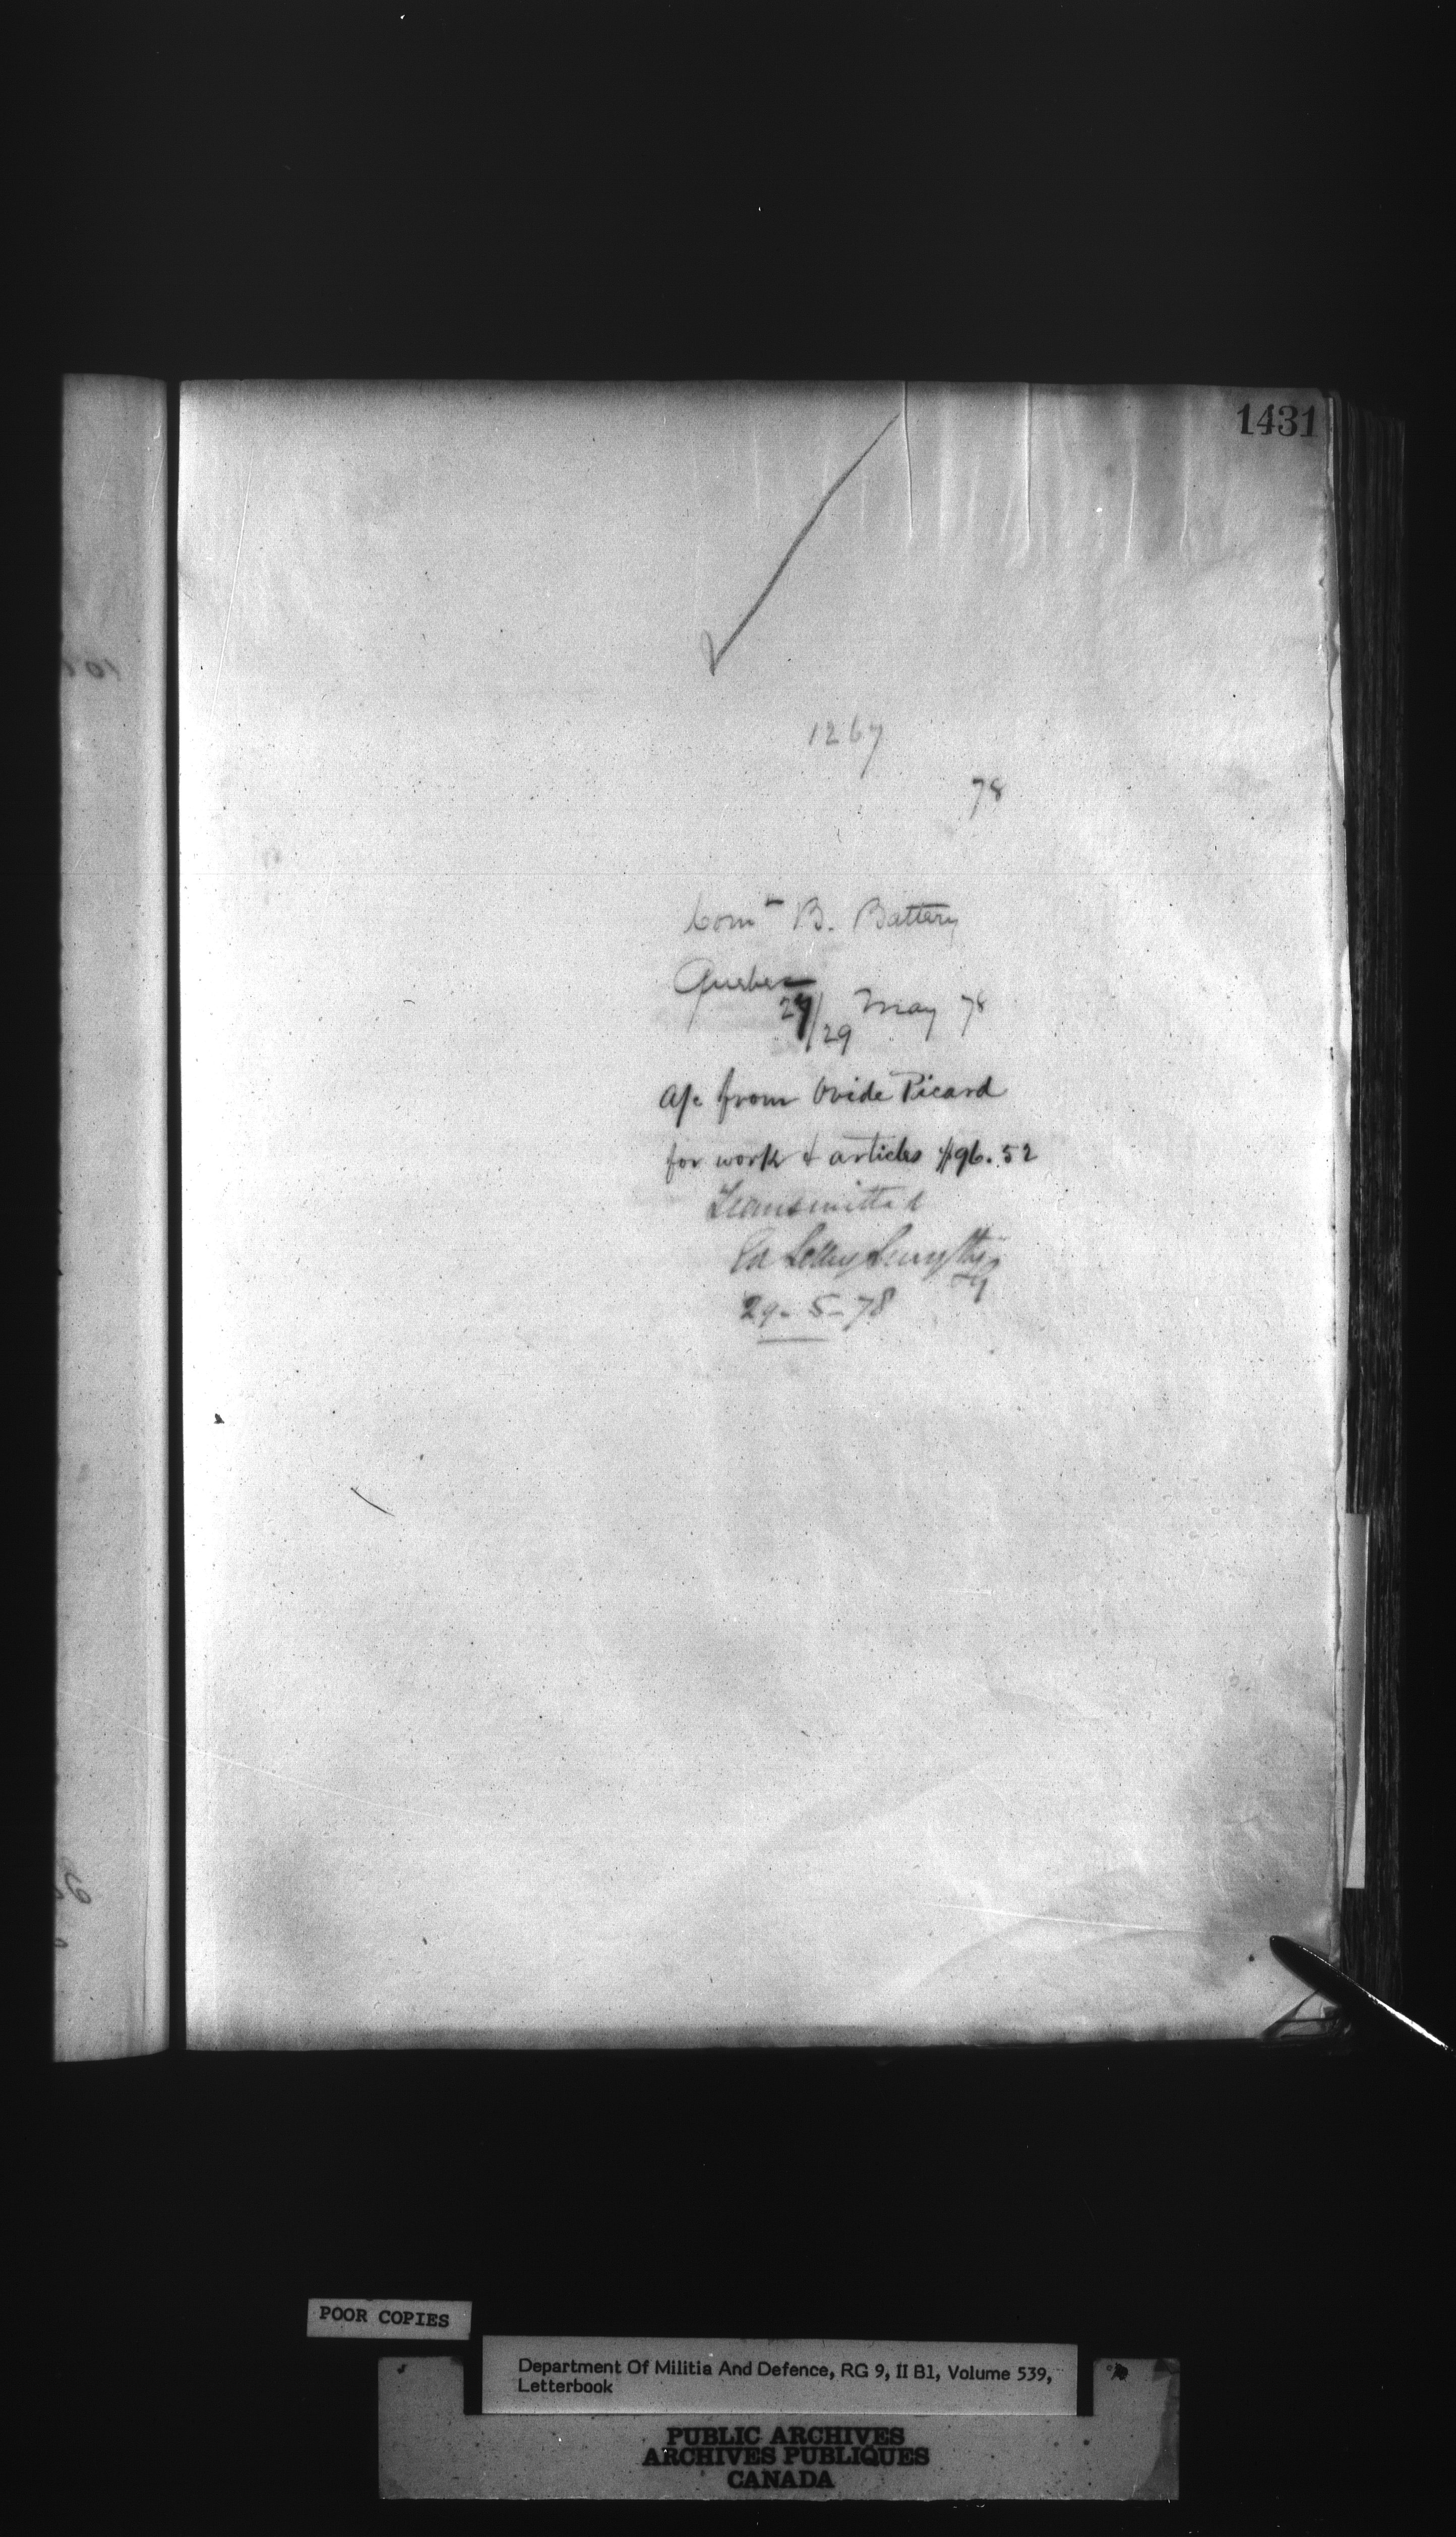 1431
1267
78
Comt B. Battery
Quebec
27/29 May 78
A/c from Ovide Picard
for work & articles $96.52
Transmitted
29-5-78
POOR COPIES
Department Of Militia And Defence, RG 9, II B1, Volume 539,
Letterbook
PUBLIC ARCHIVES
ARCHIVES PUBLIQUES
CANADA